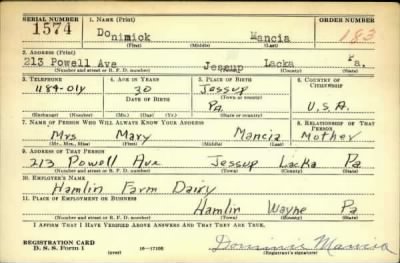 SERIAL NUMBER 1. NAME (Print) ORDER NUMBER
1574 Donimick Mancia 183
(First) (Middle) (Last)
2. ADDRESS (Print)
213 Powell Ave Jessup Lacka Pa.
(Number and street or R. F. D. number) (Town) (County) (State)
3. TELEPHONE 4. AGE IN YEARS 5. PLACE OF BIRTH 6. COUNTRY OF CITIZENSHIP
1184-014 30 Jessup
DATE OF BIRTH (Town or county)
Pa. U.S.A.
(Exchange) (Number) (Mo.) (Day) (Yr.) (State or country)
7. NAME OF PERSON WHO WILL ALWAYS KNOW YOUR ADDRESS 8. RELATIONSHIP OF THAT PERSON
Mrs Mary Mancia Mother
(Mr., Mrs., Miss) (First) (Middle) (Last)
9. ADDRESS OF THAT PERSON
213 Powell Ave Jessup Lacka Pa
(Number and street or R. F. D. number) (Town) (County) (State)
10. EMPLOYER'S NAME
Hamlin Farm Dairy
11. PLACE OF EMPLOYMENT OR BUSINESS
Hamlin Wayne Pa
(Number and street or R. F. D. number) (Town) (County) (State)
I AFFIRM THAT I HAVE VERIFIED ABOVE ANSWERS AND THAT THEY ARE TRUE.
REGISTRATION CARD
D. S. S. Form 1 (over) 16—17105 Dominic Mancia
(Registrant's signature)